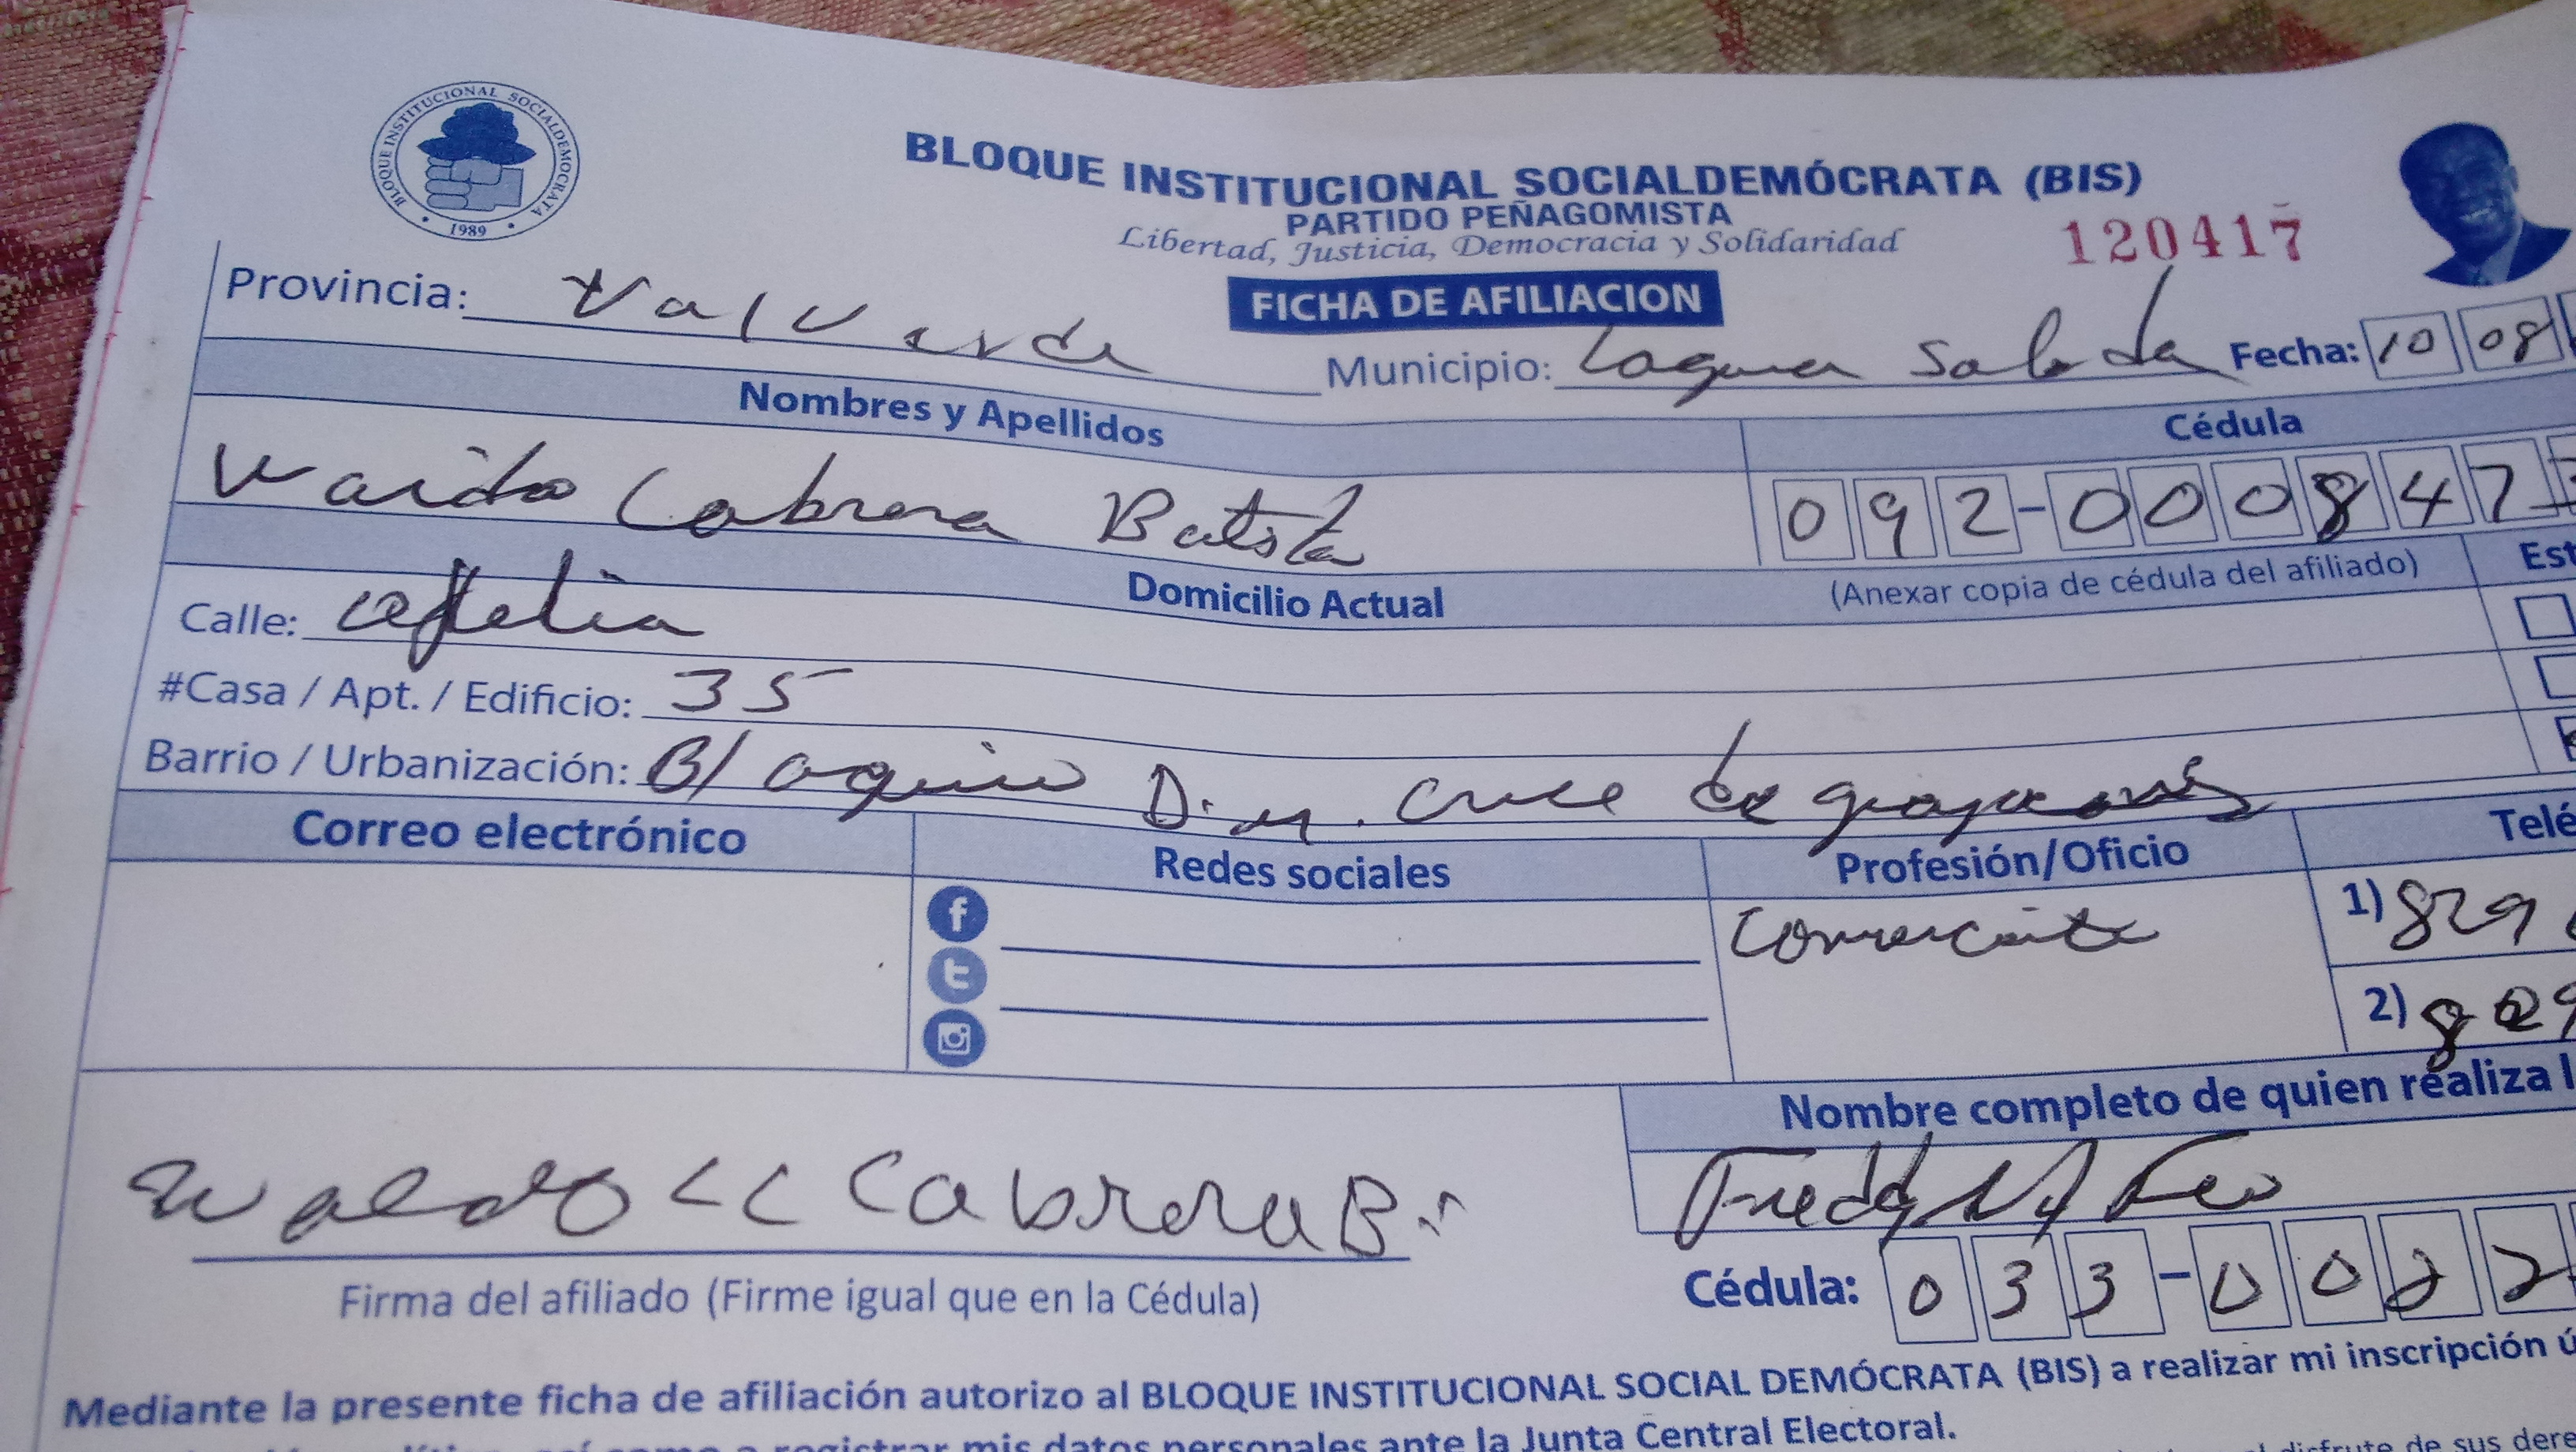 BLOQUE INSTITUCIONAL SOCIALDEMOCRATA
1989
BLOQUE INSTITUCIONAL SOCIALDEMÓCRATA (BIS)
PARTIDO PEÑAGOMISTA
Libertad, Justicia, Democracia y Solidaridad
120417
FICHA DE AFILIACION
Provincia: Valverde
Municipio: Laguna Salada Fecha: 10 08
Nombres y Apellidos Cédula
Cabrera Batista 092-000847
Domicilio Actual (Anexar copia de cédula del afiliado) Est
Calle:
#Casa / Apt. / Edificio: 35
Barrio / Urbanización: D.M. cruce de guayacanes
Correo electrónico Redes sociales Profesión/Oficio Telé
f
t
Comerciante
1) 829
2) 809
Nombre completo de quien realiza l
Freddy
Waldo Cabrera B.
Firma del afiliado (Firme igual que en la Cédula)
Cédula: 033-0022
Mediante la presente ficha de afiliación autorizo al BLOQUE INSTITUCIONAL SOCIAL DEMÓCRATA (BIS) a realizar mi inscripción ú
registrar mis datos personales ante la Junta Central Electoral.
disfrute de sus dere